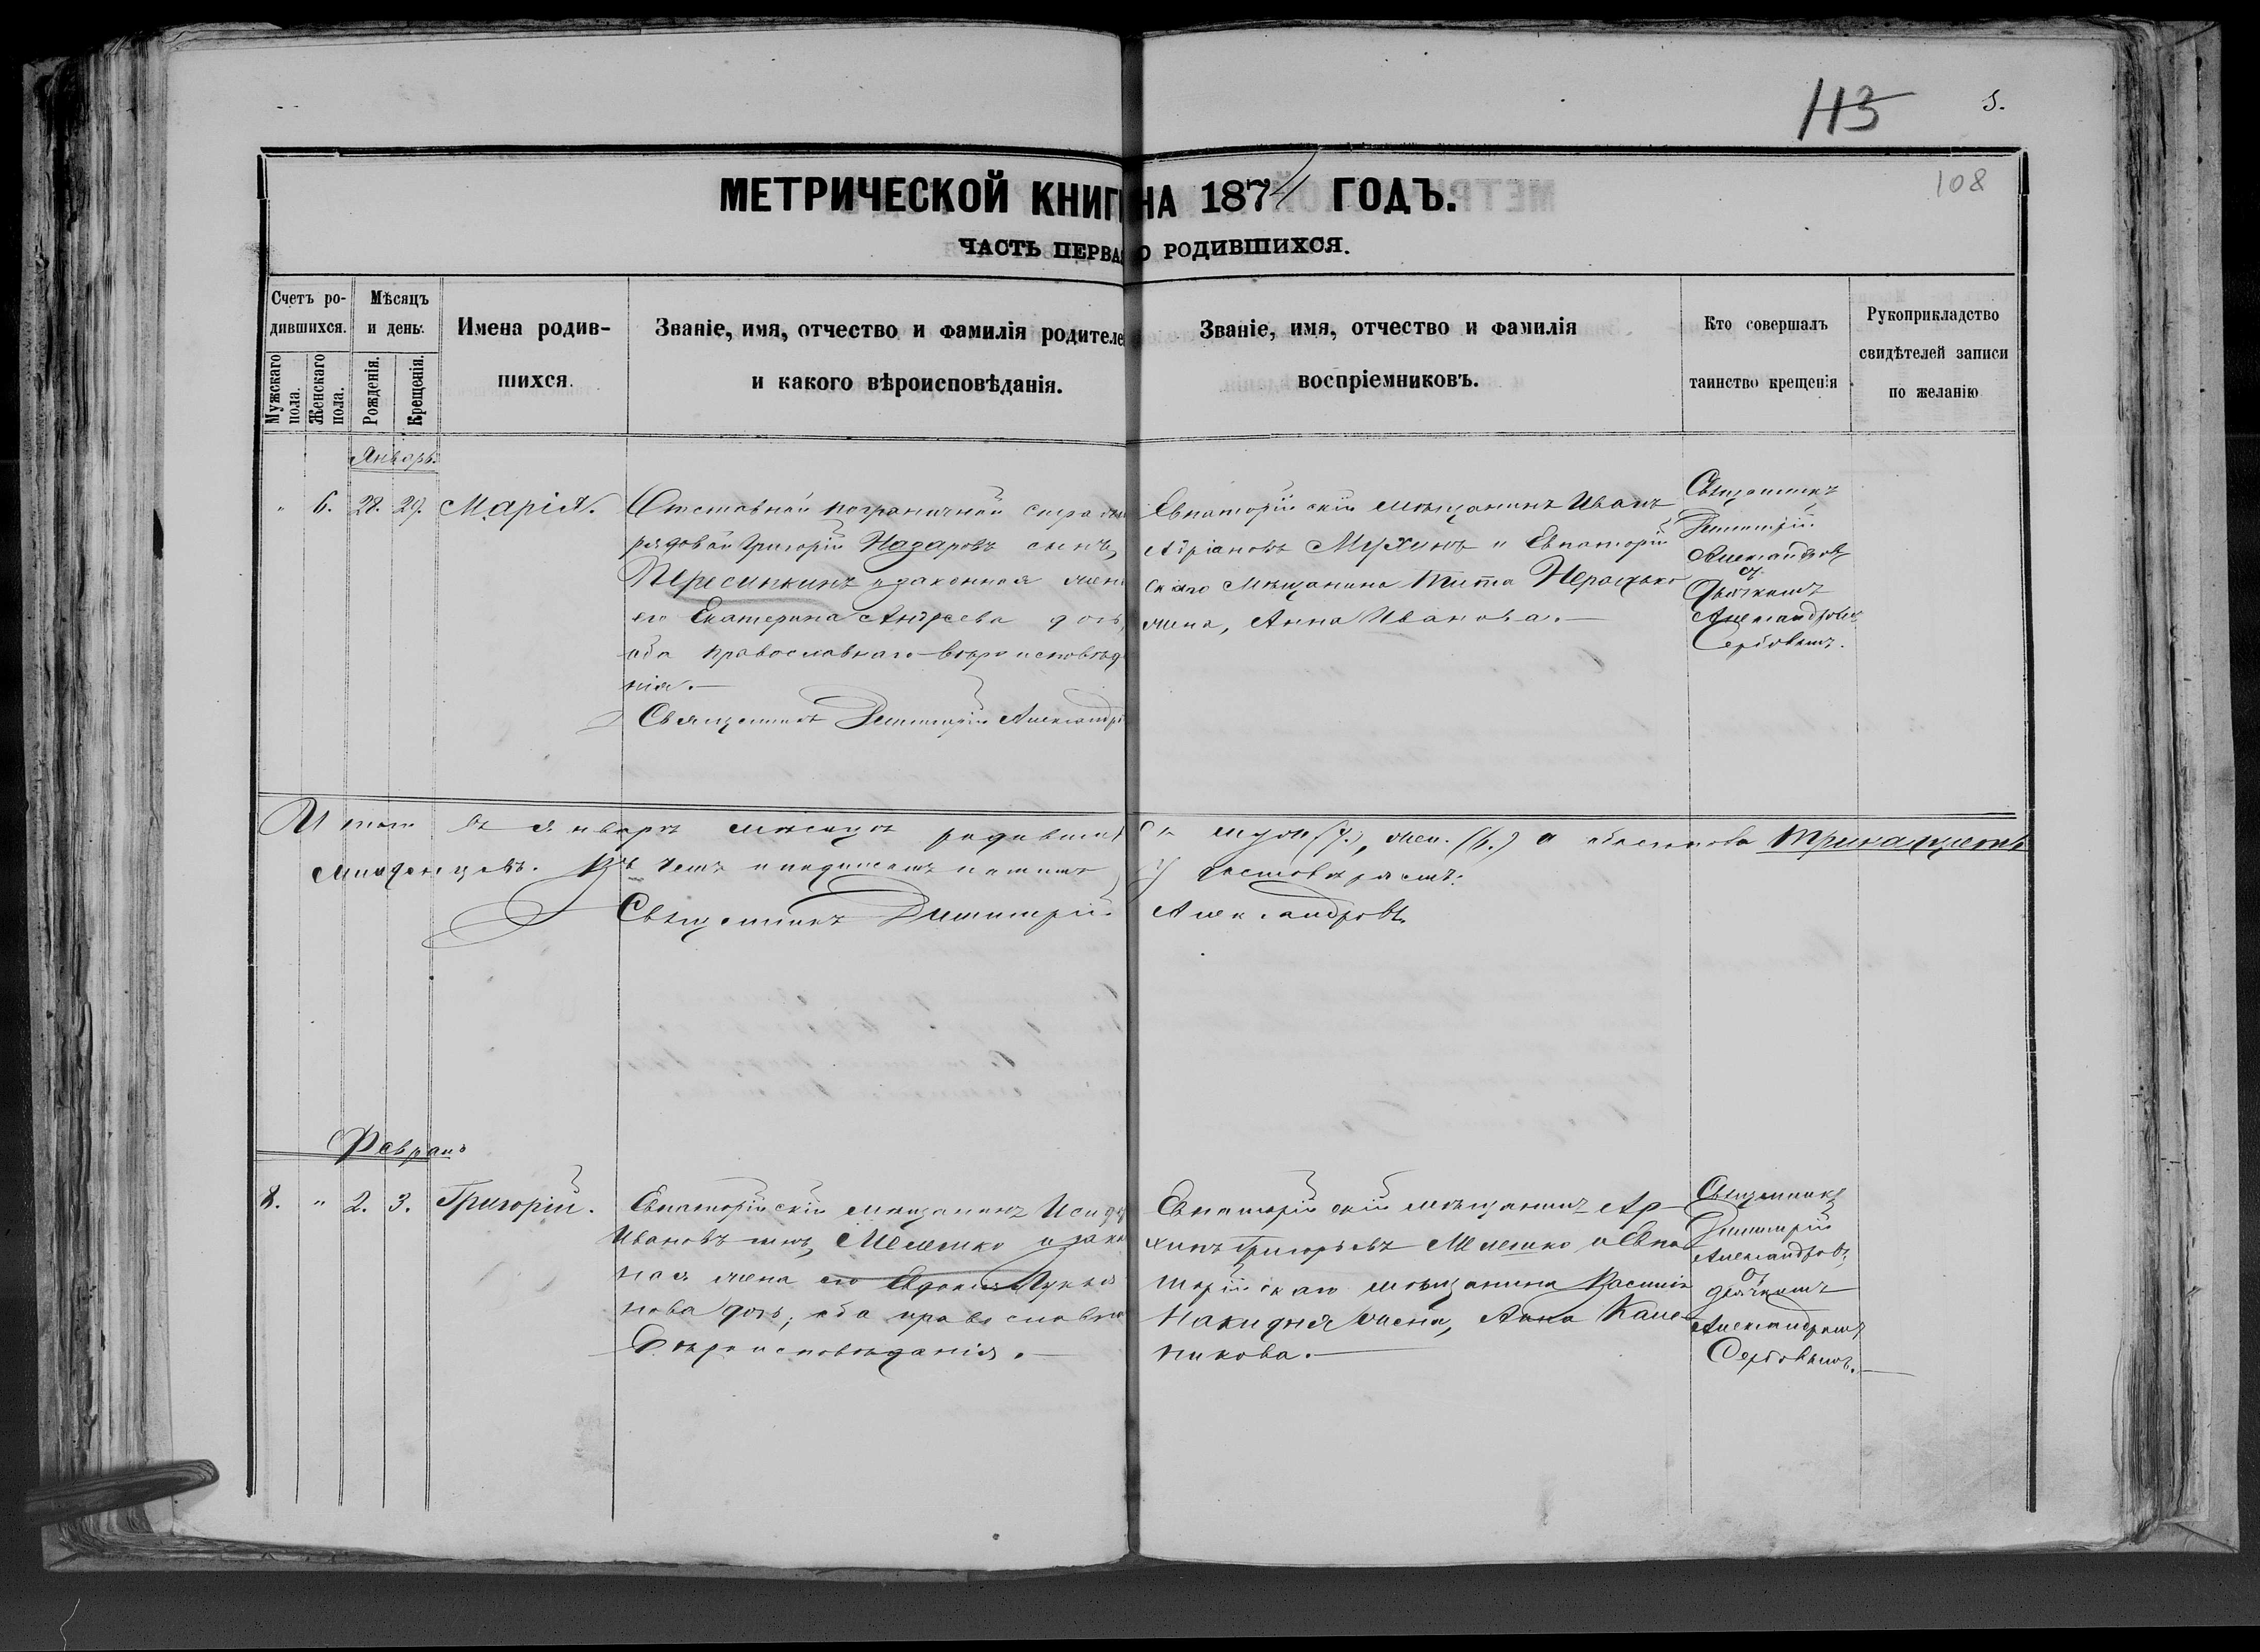 113 5.
108
МЕТРИЧЕСКОЙ КНИГ НА 1874 ГОДЪ.
ЧАСТЬ ПЕРВАЯ О РОДИВШИХСЯ.
Счетъ ро-
дившихся.
Мужскаго
пола.
Женскаго
пола.
Мѣсяцъ
и день.
Рожденія.
Крещенія.
Имена родив-
шихся.
Званіе, имя, отчество и фамилія родителе
и какого вѣроисповѣданія.
Званіе, имя, отчество и фамилія
воспріемниковъ.
Кто совершалъ
таинство крещенія
Рукоприкладство
свидѣтелей записи
по желанію
Январь.
" 6. 28. 29. Марія.
Отставной пограничной стражи
рядовой Григорій Назаровъ сынъ
Пересыпкинъ и законная жена
его Екатерина Андреева дочь,
оба православнаго вѣроисповѣд
нія.
Священникъ Димитрій Александро
Евпаторійскій мѣщанинъ Иванъ
Адріановъ Мухинъ и Евпаторій
скаго мѣщанина Тита
жена, Анна Иванова.
Священникъ
Димитрій
Александровъ
съ
дьячкомъ
Александромъ
Сербовымъ.
Итого въ январѣ мѣсяцѣ родивших ся муж. (7.), жен. (6.) а обоего пола тринадцать
младенцевъ. Въ чемъ и подписомъ нашимъ удостовѣряемъ:
Священникъ Димитрій Александровъ.
Февраль
8. " 2. 3. Григорій.
Евпаторійскій мѣщанинъ Исидор
Ивановъ сынъ Мелешко и закон
ная жена его Евдокія Лукья
нова дочь, оба православна
вѣроисповѣданія.
Евпаторійскій мѣщанинъ Ар-
хипъ Григорьевъ Мелешко и Евпа
торійскаго мѣщанина Василія
Накидня жена, Анна
никова.
Священникъ
Димитрій
Александровъ
съ
дьячкомъ
Александромъ
Сербовымъ.